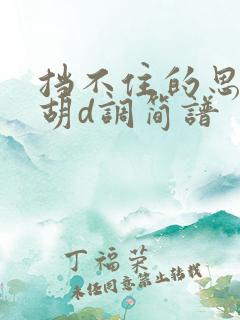 挡不住的思
胡d調简譜
丁福荣
未经同意禁止转载